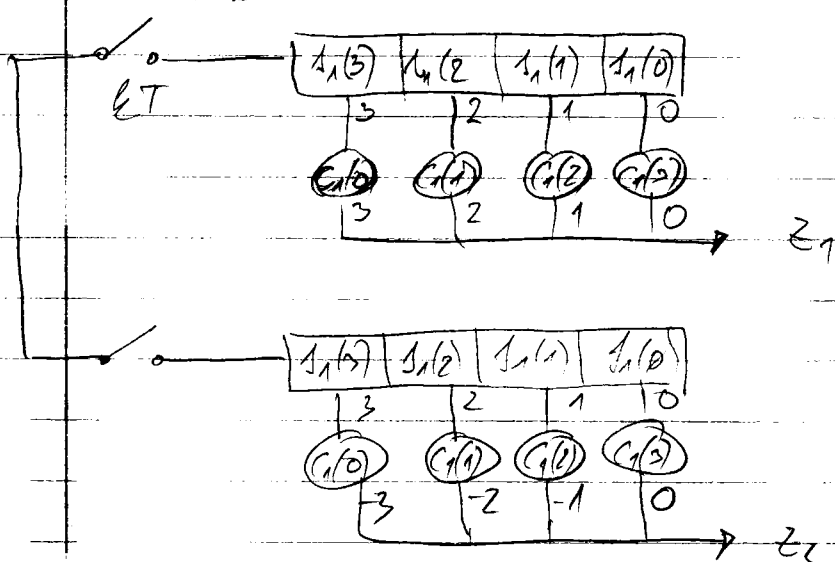 s₁(3) s₁(2 s₁(1) s₁(0)
kT
3 2 1 0
C₁(0) C₁(1) C₁(2) C₁(3)
3 2 1 0
Z₁
s₁(3) s₁(2) s₁(1) s₁(0)
3 2 1 0
C₁(0) C₁(1) C₁(2) C₁(3)
-3 -2 -1 0
Z₂